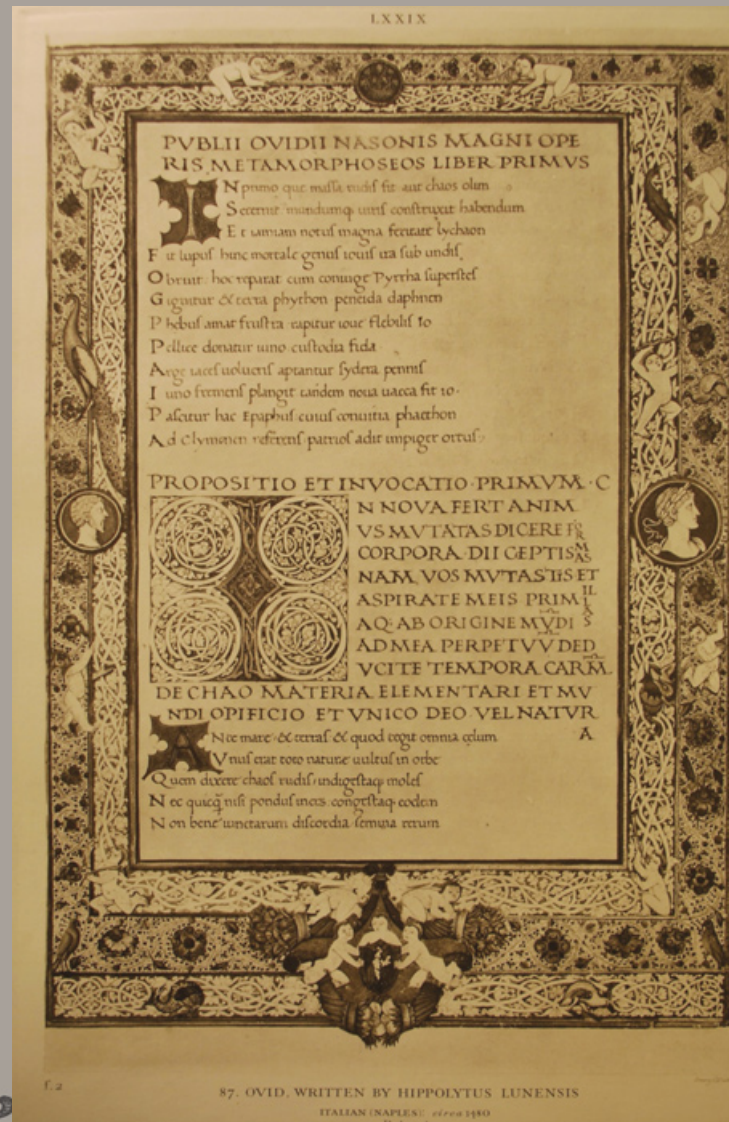 LXXIX
PVBLII OVIDII NASONIS MAGNI OPE
RIS METAMORPHOSEOS LIBER PRIMVS
IN primo que massa rudis sit aut chaos olim
Secernit mundumq; uiris construxit habendum
Et iamiam notus magna feritate lychaon
Fit lupus hinc mortale genus iouis ira sub undis
Obruit hoc reparat cum coniuge Pyrrha superstes
Gignitur & terra phython peneida daphnen
Phebus amat frustra capitur ioue flebilis Io
Pellice donatur uino custodia fida
Arge iaces uolucris aptantur sydera pennis
Iuno fremens plangit tandem noua uacca fit io.
Pascitur hac Epaphus cuius conuitia phaethon
Ad Clymenen referens patrios adit impiger ortus:
PROPOSITIO ET INVOCATIO PRIMVM. C
N NOVA FERT ANIM
VS MVTATAS DICERE FOR
CORPORA DII CEPTIS MAS
NAM VOS MVTASTIS ET
ASPIRATE MEIS PRIM
AQ; AB ORIGINE MVDI
AD MEA PERPETVV DED
VCITE TEMPORA CARM
DE CHAO MATERIA ELEMENTARI ET MV
NDI OPIFICIO ET VNICO DEO VEL NATVR
A
ANte mare & terras & quod tegit omnia celum
Vnus erat toto nature uultus in orbe
Quem dixere chaos rudis indigestaq; moles
Nec quicq̃ nisi pondus iners congestaq; eodem
Non bene iunctarum discordia semina rerum
f. 2
87. OVID, WRITTEN BY HIPPOLYTUS LUNENSIS
ITALIAN (NAPLES): circa 1480